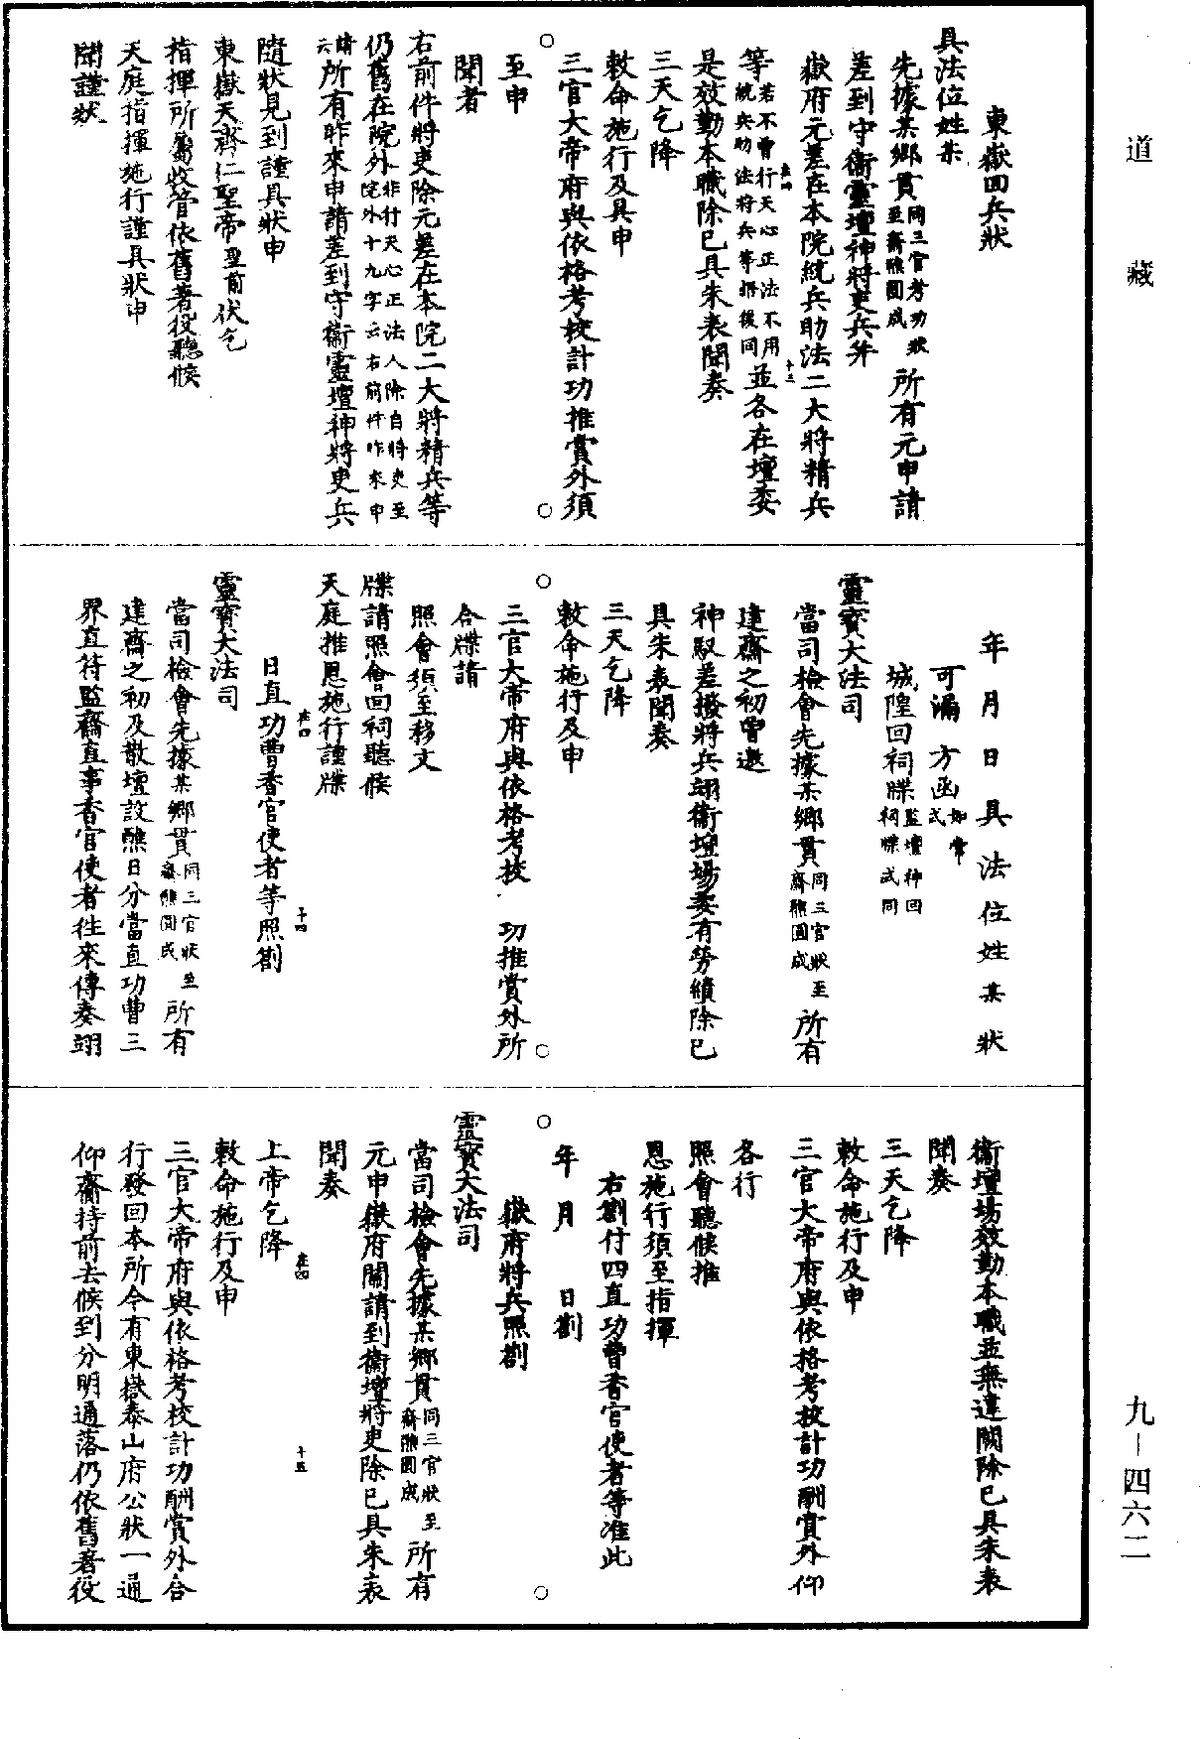 道藏
九—四六二
東嶽回兵狀
具法位姓某
先據某鄉貫同三官考功狀至齋醮圓成所有元申請
差到守衞靈壇神將吏兵并
嶽府元差在本院統兵助法二大將精兵
等若不曾行天心正法不用統兵助法將兵等語後同並各在壇委
是效勤本職除已具朱表聞奏
三天乞降
敕命施行及具申
三官大帝府與依格考校計功推賞外須
至申
聞者
右前件將吏除元差在本院二大將精兵等
仍舊在院外非行天心正法人除自將吏至院外十九字云右前件昨來申請云所有昨來申請差到守衞靈壇神將吏兵
隨狀見到謹具狀申
東嶽天齊仁聖帝聖前伏乞
指揮所屬收管依舊著役聽候
天庭指揮施行謹具狀申
聞謹狀
年月日具法位姓某狀
可漏方函如常式
城隍回祠牒監壇神回祠牒式同
靈寶大法司
當司檢會先據某鄉貫同三官狀至齋醮圓成所有
建齋之初曾邀
神馭差撥將兵翊衞壇場委有勞績除已
具朱表聞奏
三天乞降
敕命施行及申
三官大帝府與依格考校功推賞外所
合牒請
照會須至移文
牒請照會回祠聽候
天庭推恩施行謹牒
日直功曹香官使者等照劄
靈寶大法司
當司檢會先據某鄉貫同三官狀至齋醮圓成所有
建齋之初及散壇設醮日分當直功曹三
界直符監齋直事香官使者往來傳奏翊
衞壇場效勤本職並無違闕除已具朱表
聞奏
三天乞降
敕命施行及申
三官大帝府與依格考校計功酬賞外仰
各行
照會聽候推
恩施行須至指揮
右劄付四直功曹香官使者等准此
年月日劄
嶽府將兵照劄
靈寶大法司
當司檢會先據某鄉貫同三官狀至齋醮圓成所有
元申嶽府關請到衞壇將吏除已具朱表
聞奏
上帝乞降
敕命施行及申
三官大帝府與依格考校計功酬賞外合
行發回本所今有東嶽泰山府公狀一通
仰齎持前去候到分明通落仍依舊著役